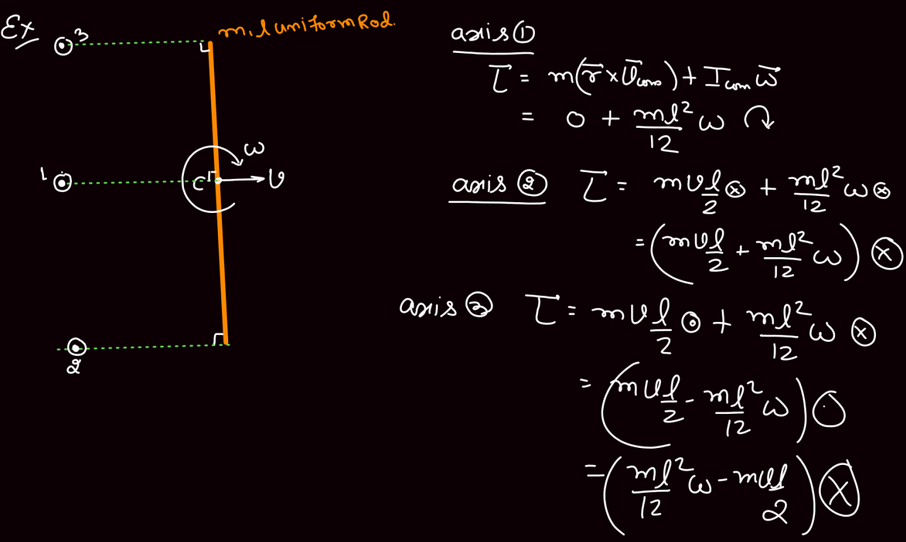 Ex
m, l uniform Rod.
3
1
C
ω
v
2
axis ①
τ = m(r̄ × v̄com) + Icom ω̄
= 0 + ml²/12 ω ↷
axis ② τ = mvl/2 ⊗ + ml²/12 ω ⊗
= (mvl/2 + ml²/12 ω) ⊗
axis ③ τ = mvl/2 ⊙ + ml²/12 ω ⊗
= (mvl/2 - ml²/12 ω) ⊙
= (ml²/12 ω - mvl/2) ⊗